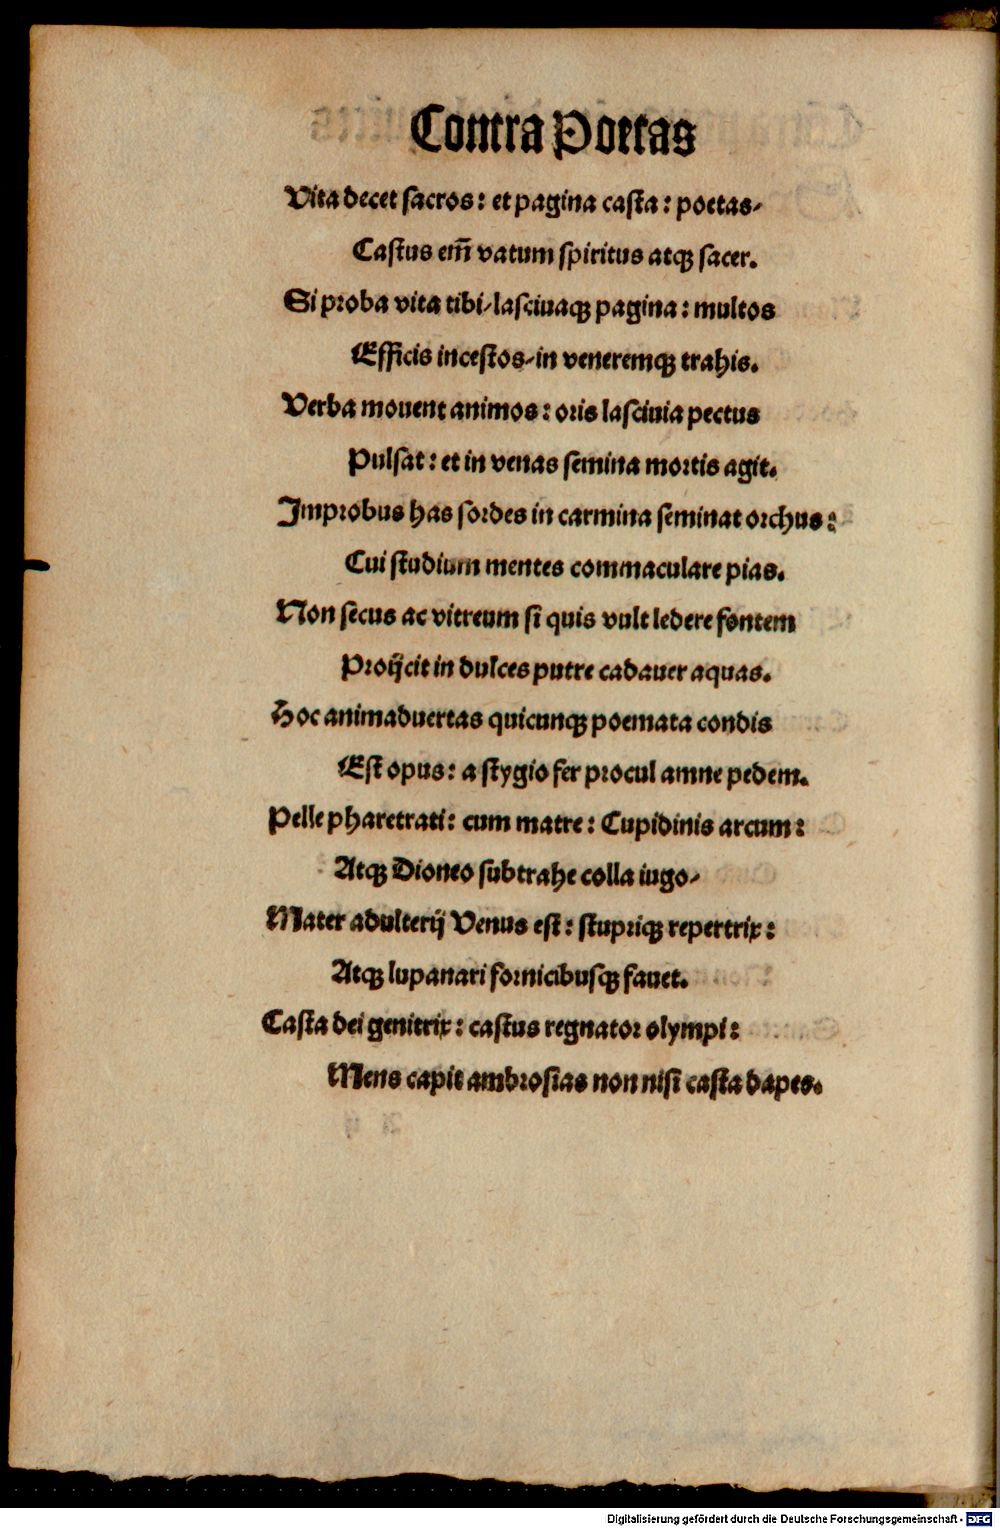 Contra Poetas
Vita decet sacros: et pagina casta: poetas/
Castus em̄ vatum spiritus atqꝫ sacer.
Si proba vita tibi/lasciuaqꝫ pagina: multos
Efficis incestos/in veneremqꝫ trahis.
Verba mouent animos: oris lasciuia pectus
Pulsat: et in venas semina mortis agit.
Improbus has sordes in carmina seminat orchus:
Cui studium mentes commaculare pias.
Non secus ac vitreum si quis vult ledere fontem
Proijcit in dulces putre cadauer aquas.
Hoc animaduertas quicunqꝫ poemata condis
Est opus: a stygio fer procul amne pedem.
Pelle pharetrati: cum matre: Cupidinis arcum:
Atqꝫ Dioneo subtrahe colla iugo/
Mater adulterij Venus est: stupriqꝫ repertrix:
Atqꝫ lupanari fornicibusqꝫ fauet.
Casta dei genitrix: castus regnator olympi:
Mens capit ambrosias non nisi casta dapes.
Digitalisierung gefördert durch die Deutsche Forschungsgemeinschaft - DFG